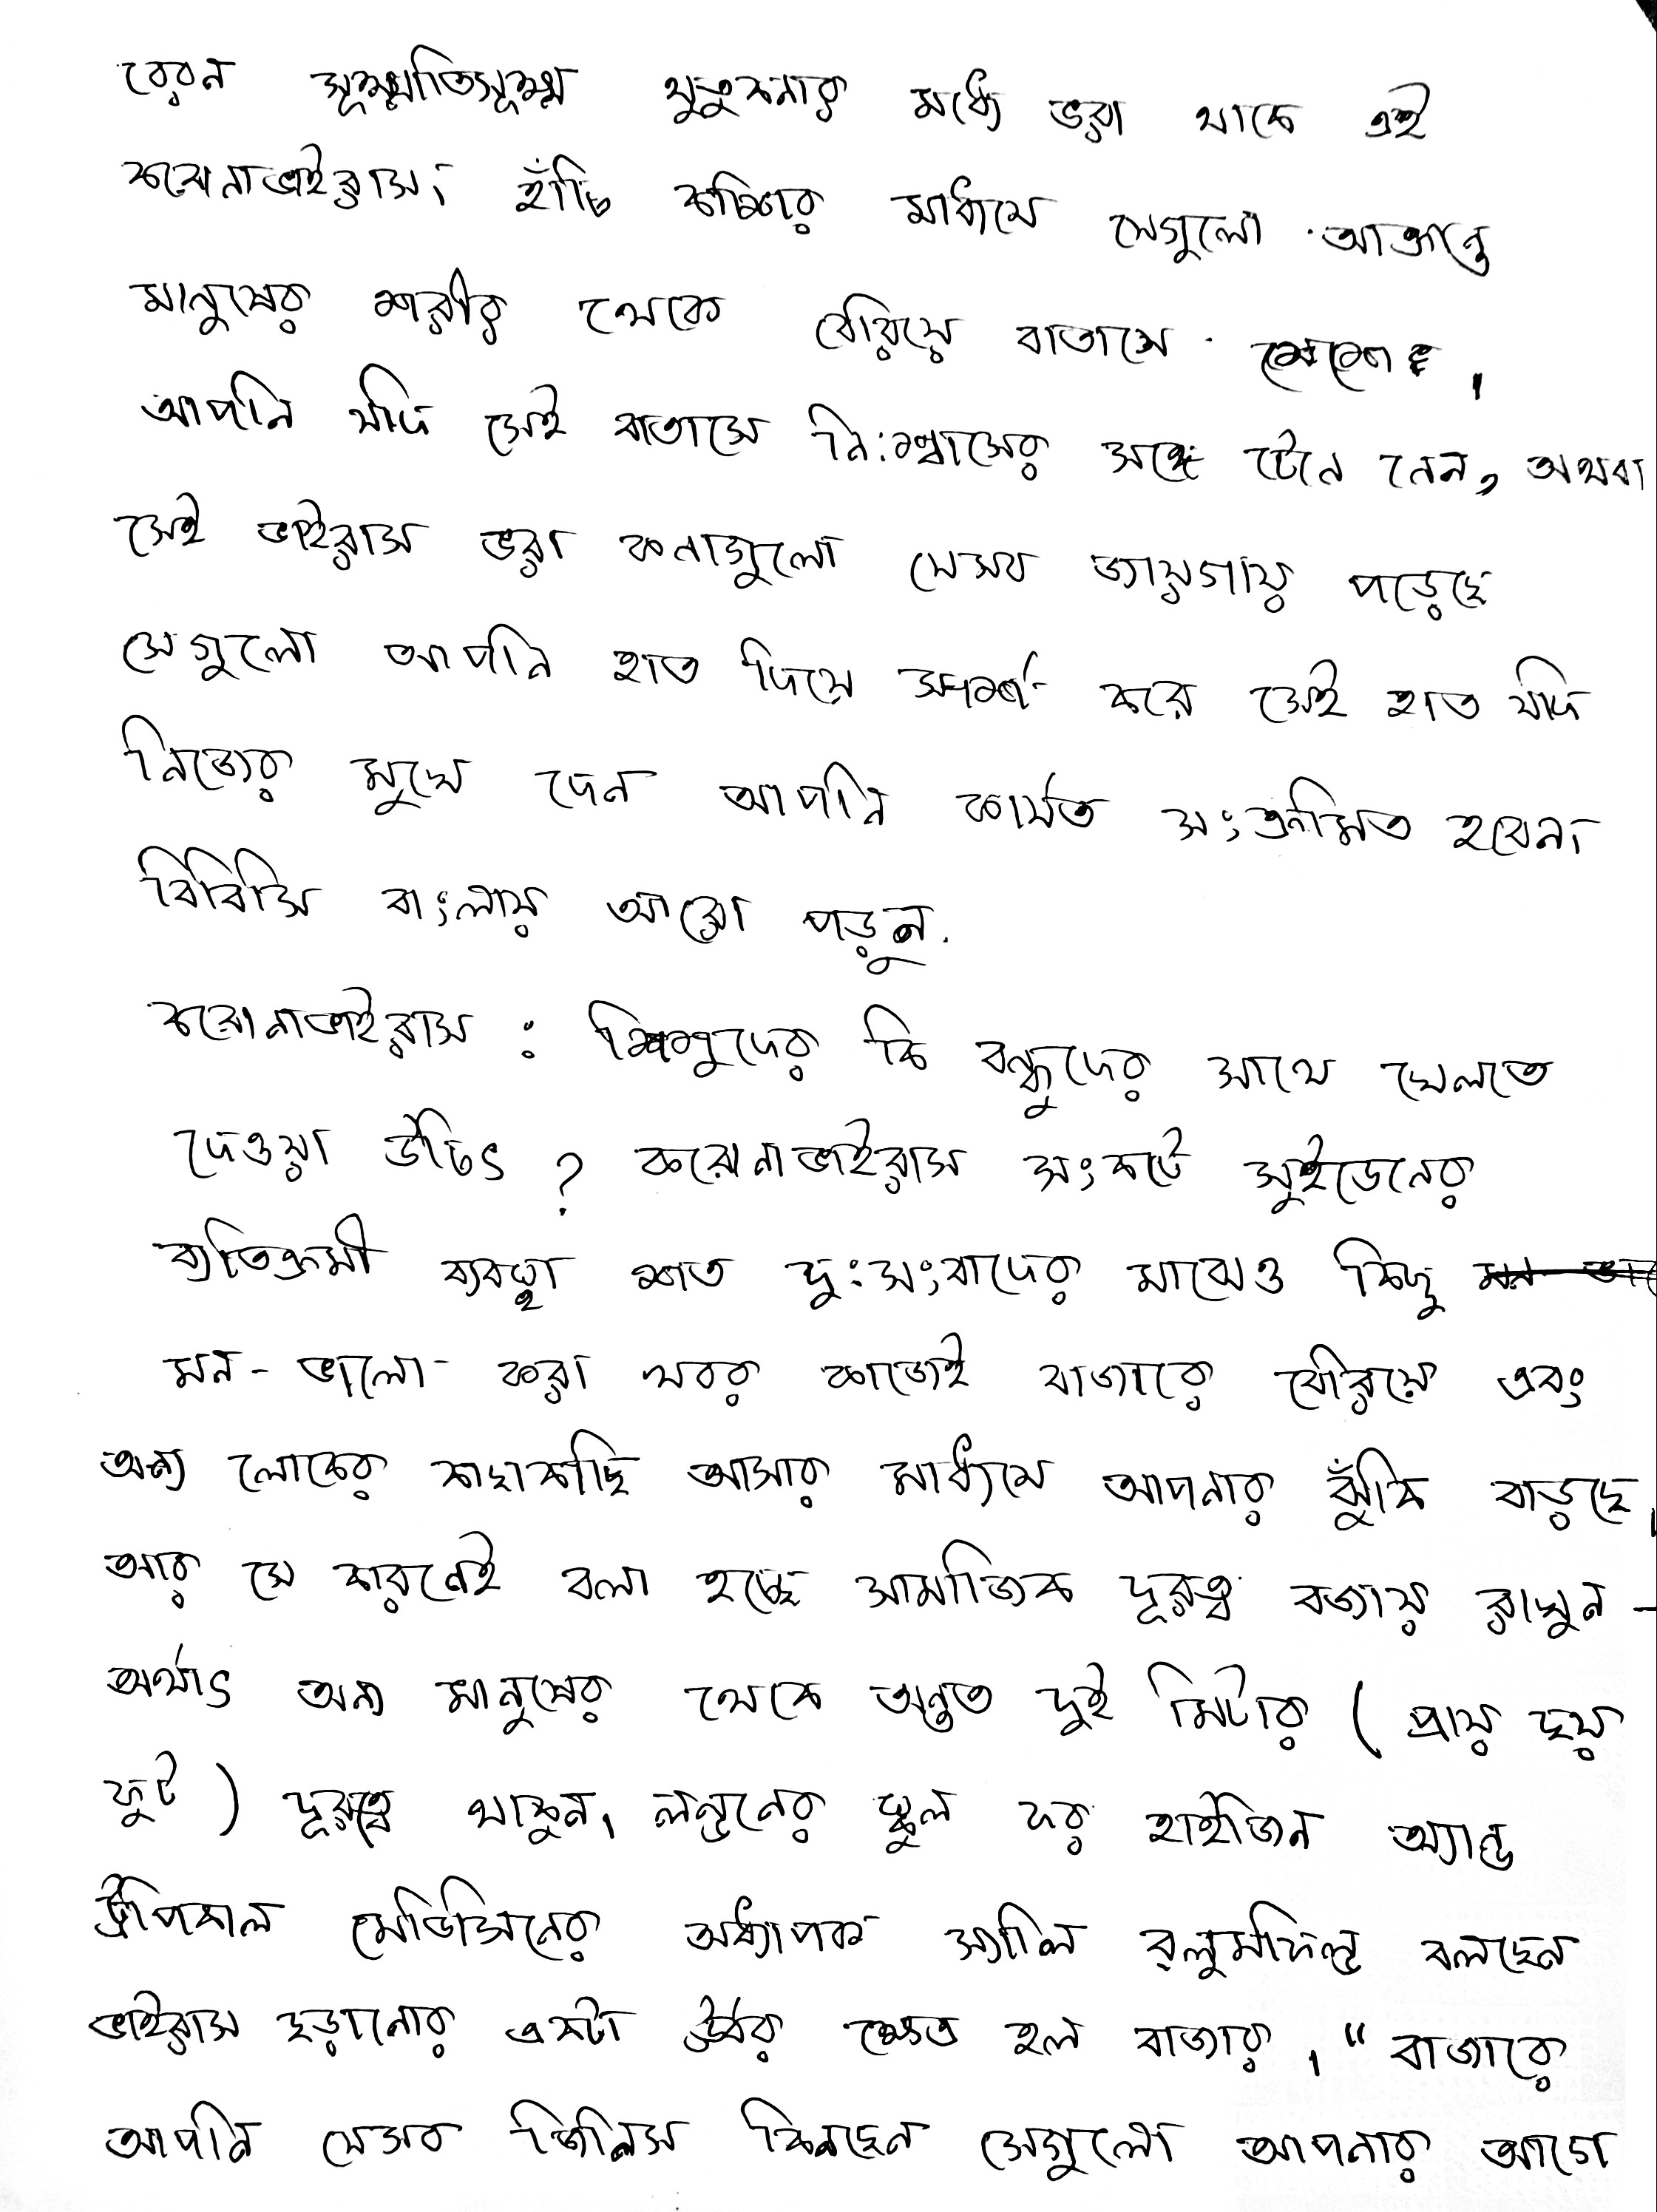 বেরন সূক্ষ্মাতিসূক্ষ্ম থুতুকনার মধ্যে ভরা থাকে এই
করোনাভাইরাস। হাঁচি কাশির মাধ্যমে সেগুলো আক্রান্ত
মানুষের শরীর থেকে বেরিয়ে বাতাসে মেশে।
আপনি যদি সেই বাতাসে নিঃশ্বাসের সঙ্গে টেনে নেন, অথবা
সেই ভাইরাস ভরা কনাগুলো যেসব জায়গায় পড়েছে
সেগুলো আপনি হাত দিয়ে স্পর্শ করে সেই হাত যদি
নিজের মুখে দেন আপনি কার্যত সংক্রমিত হবেন।
বিবিসি বাংলায় আরো পড়ুন.
করোনাভাইরাস : শিশুদের কি বন্ধুদের সাথে খেলতে
দেওয়া উচিৎ ? করোনাভাইরাস সংকটে সুইডেনের
ব্যতিক্রমী ব্যবস্থা শত দুঃসংবাদের মাঝেও কিছু
মন-ভালো-করা খবর কাজেই বাজারে বেরিয়ে এবং
অন্য লোকের কাছাকাছি আসার মাধ্যমে আপনার ঝুঁকি বাড়ছে।
আর সে কারনেই বলা হচ্ছে সামাজিক দূরত্ব বজায় রাখুন -
অর্থাৎ অন্য মানুষের থেকে অন্তত দুই মিটার ( প্রায় ছয়
ফুট ) দূরত্বে থাকুন। লন্ডনের স্কুল ফর হাইজিন অ্যান্ড
ট্রপিকাল মেডিসিনের অধ্যাপক স্যালি ব্লুমফিল্ড বলছেন
ভাইরাস ছড়ানোর একটা উর্বর ক্ষেত্র হল বাজার। "বাজারে
আপনি যেসব জিনিস কিনছেন সেগুলো আপনার আগে